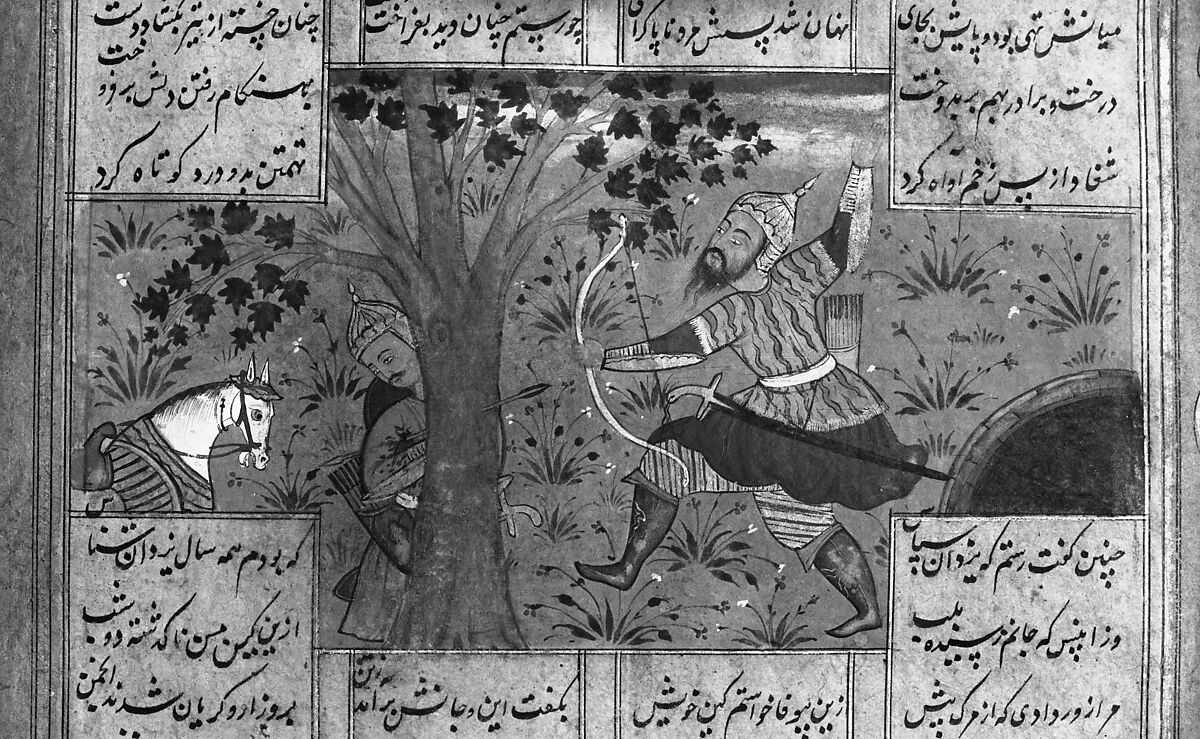 میانش تهی بود و پایش بجای
نهان شد پسش مرد ناپاک رای
چو رستم چنان دید بفراخت
چنان خسته از تیر بکشاد دست
درخت و برادر بهم بر بدوخت
بهنگام رفتن دلش برفروخت
شغاد از پس زخم او آه کرد
تهمتن بدو درد کوتاه کرد
چنین گفت رستم که یزدان سپاس
که بودم همه سال یزدان شناس
وزان پس که جانم رسیده بلب
ازین کین من ناگذشته دو شب
مرا زور دادی که از مرگ پیش
ازین بیوفا خواستم کین خویش
بگفت این و جانش برآمد ز تن
برو زار و گریان شدند انجمن